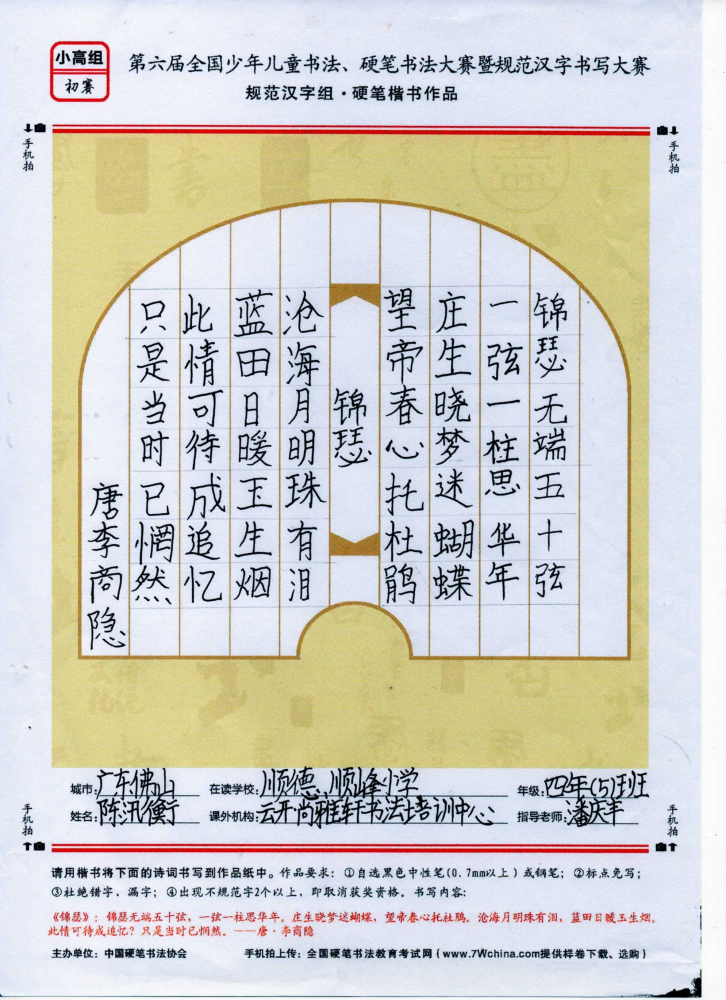 小高组
初赛
第六届全国少年儿童书法、硬笔书法大赛暨规范汉字书写大赛
规范汉字组·硬笔楷书作品
手机拍
手机拍
锦瑟无端五十弦
一弦一柱思华年
庄生晓梦迷蝴蝶
望帝春心托杜鹃
锦瑟
沧海月明珠有泪
蓝田日暖玉生烟
此情可待成追忆
只是当时已惘然
唐李商隐
城市:广东佛山 在读学校:顺德顺峰小学 年级:四年(5)班
姓名:陈汛衡 课外机构:云开尚雅轩书法培训中心 指导老师:潘庆丰
手机拍
手机拍
请用楷书将下面的诗词书写到作品纸中。作品要求:①自选黑色中性笔(0.7mm以上)或钢笔;②标点免写;
③杜绝错字、漏字;④出现不规范字2个以上,即取消获奖资格。书写内容:
《锦瑟》:锦瑟无端五十弦,一弦一柱思华年。庄生晓梦迷蝴蝶,望帝春心托杜鹃。沧海月明珠有泪,蓝田日暖玉生烟。
此情可待成追忆?只是当时已惘然。——唐·李商隐
主办单位:中国硬笔书法协会 手机拍上传:全国硬笔书法教育考试网(www.7Wchina.com提供样卷下载、选购)